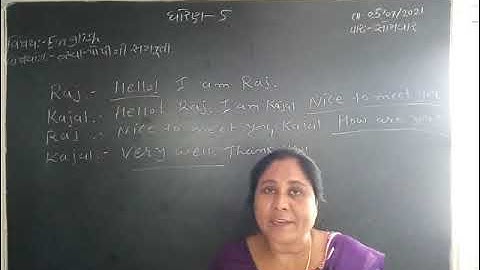 ધોરણ-5
તા 05/07/2021
વાર-સોમવાર
વિષય:-English
Raj.- Hello! I am Raj.
Kajal:- Hello! Raj. I am Kajal Nice to meet you
Raj :- Nice to meet you, Kajal How are you
Kajal:- Very well, Thank you